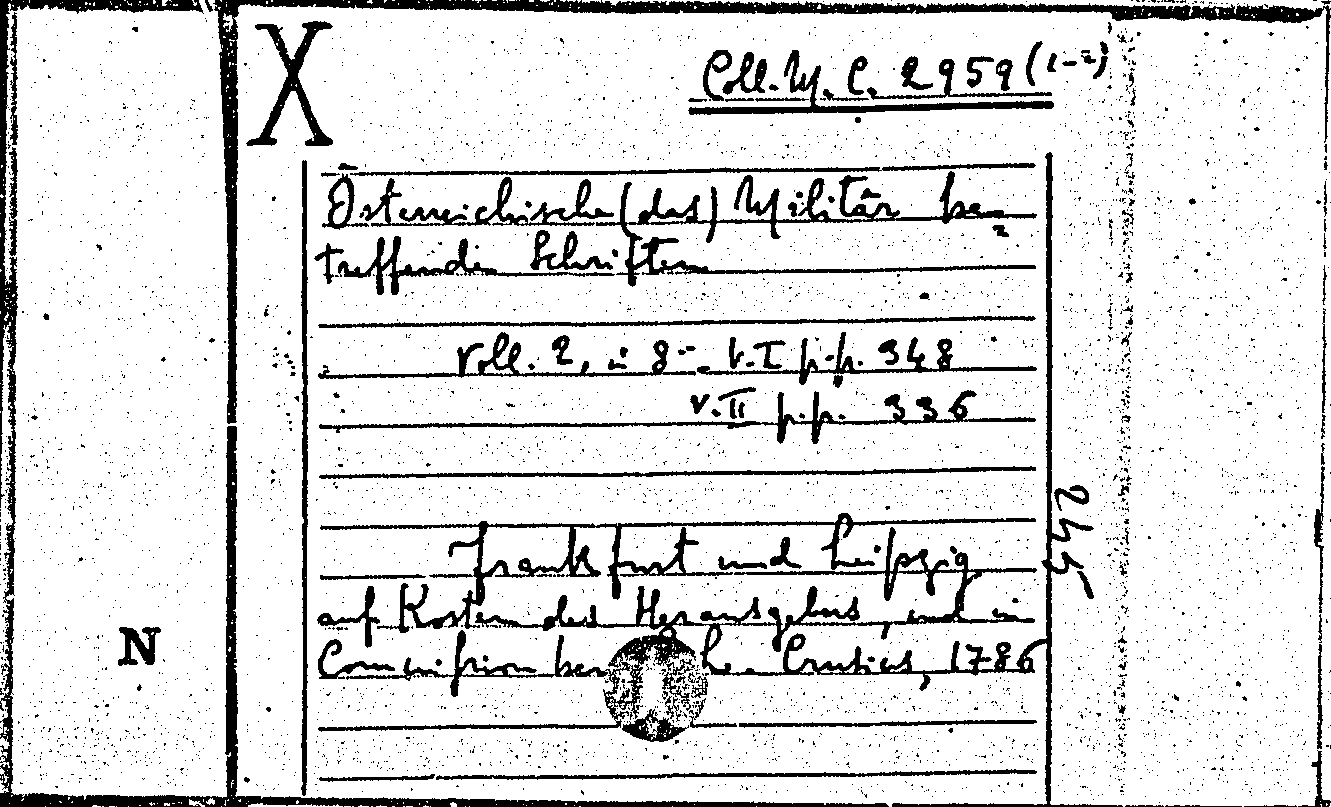 X
Coll. M. C. 2959 (1-2)
Österreichische (das) Militär be=
treffenden Schriften
Voll. 2, in 8° - V. I p.p. 348
V. II p.p. 336
245
Frankfurt und Leipzig
auf Kosten des Herausgebers, und in
Commission bey Crusius, 1786
N